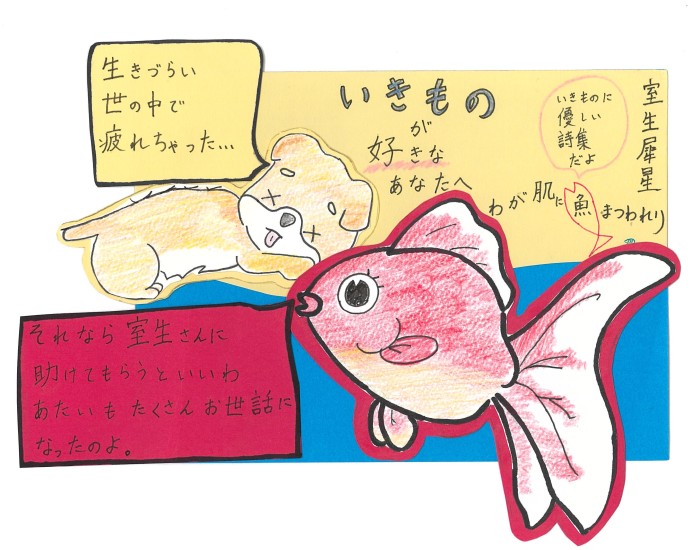 生きづらい
世の中で
疲れちゃった…
いきもの
が
好きな
あなたへ
いきものに
優しい
詩集
だよ
室生犀星
わが肌に魚まつわれり
それなら室生さんに
助けてもらうといいわ
あたいもたくさんお世話に
なったのよ。